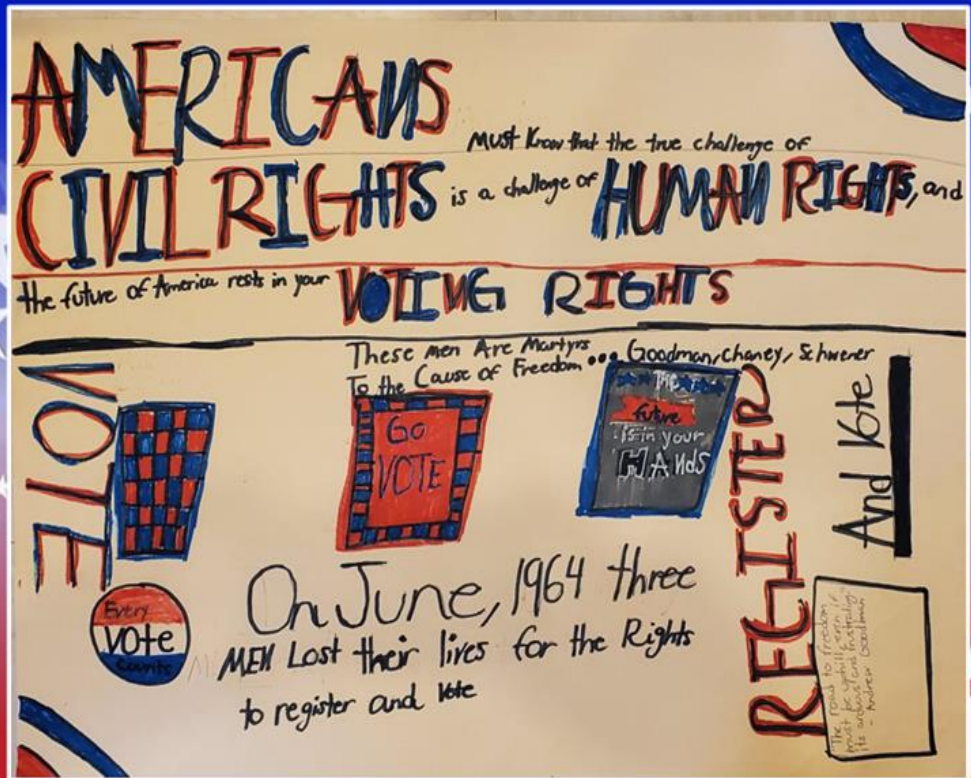 AMERICANS
Must Know that the true challenge of
CIVIL RIGHTS is a challenge of HUMAN RIGHTS, and
the future of America rests in your VOTING RIGHTS
These men Are Martyrs
To the Cause of Freedom... Goodman, Chaney, Schwerner
VOTE
Go
VOTE
The
future
is in your
HANds
REGISTER
And Vote
Every
Vote
Counts
On June, 1964 three
MEN Lost their lives for the Rights
to register and Vote
"The road to freedom
must be uphill, even if
its arduous and frustrating"
- Andrew Goodman